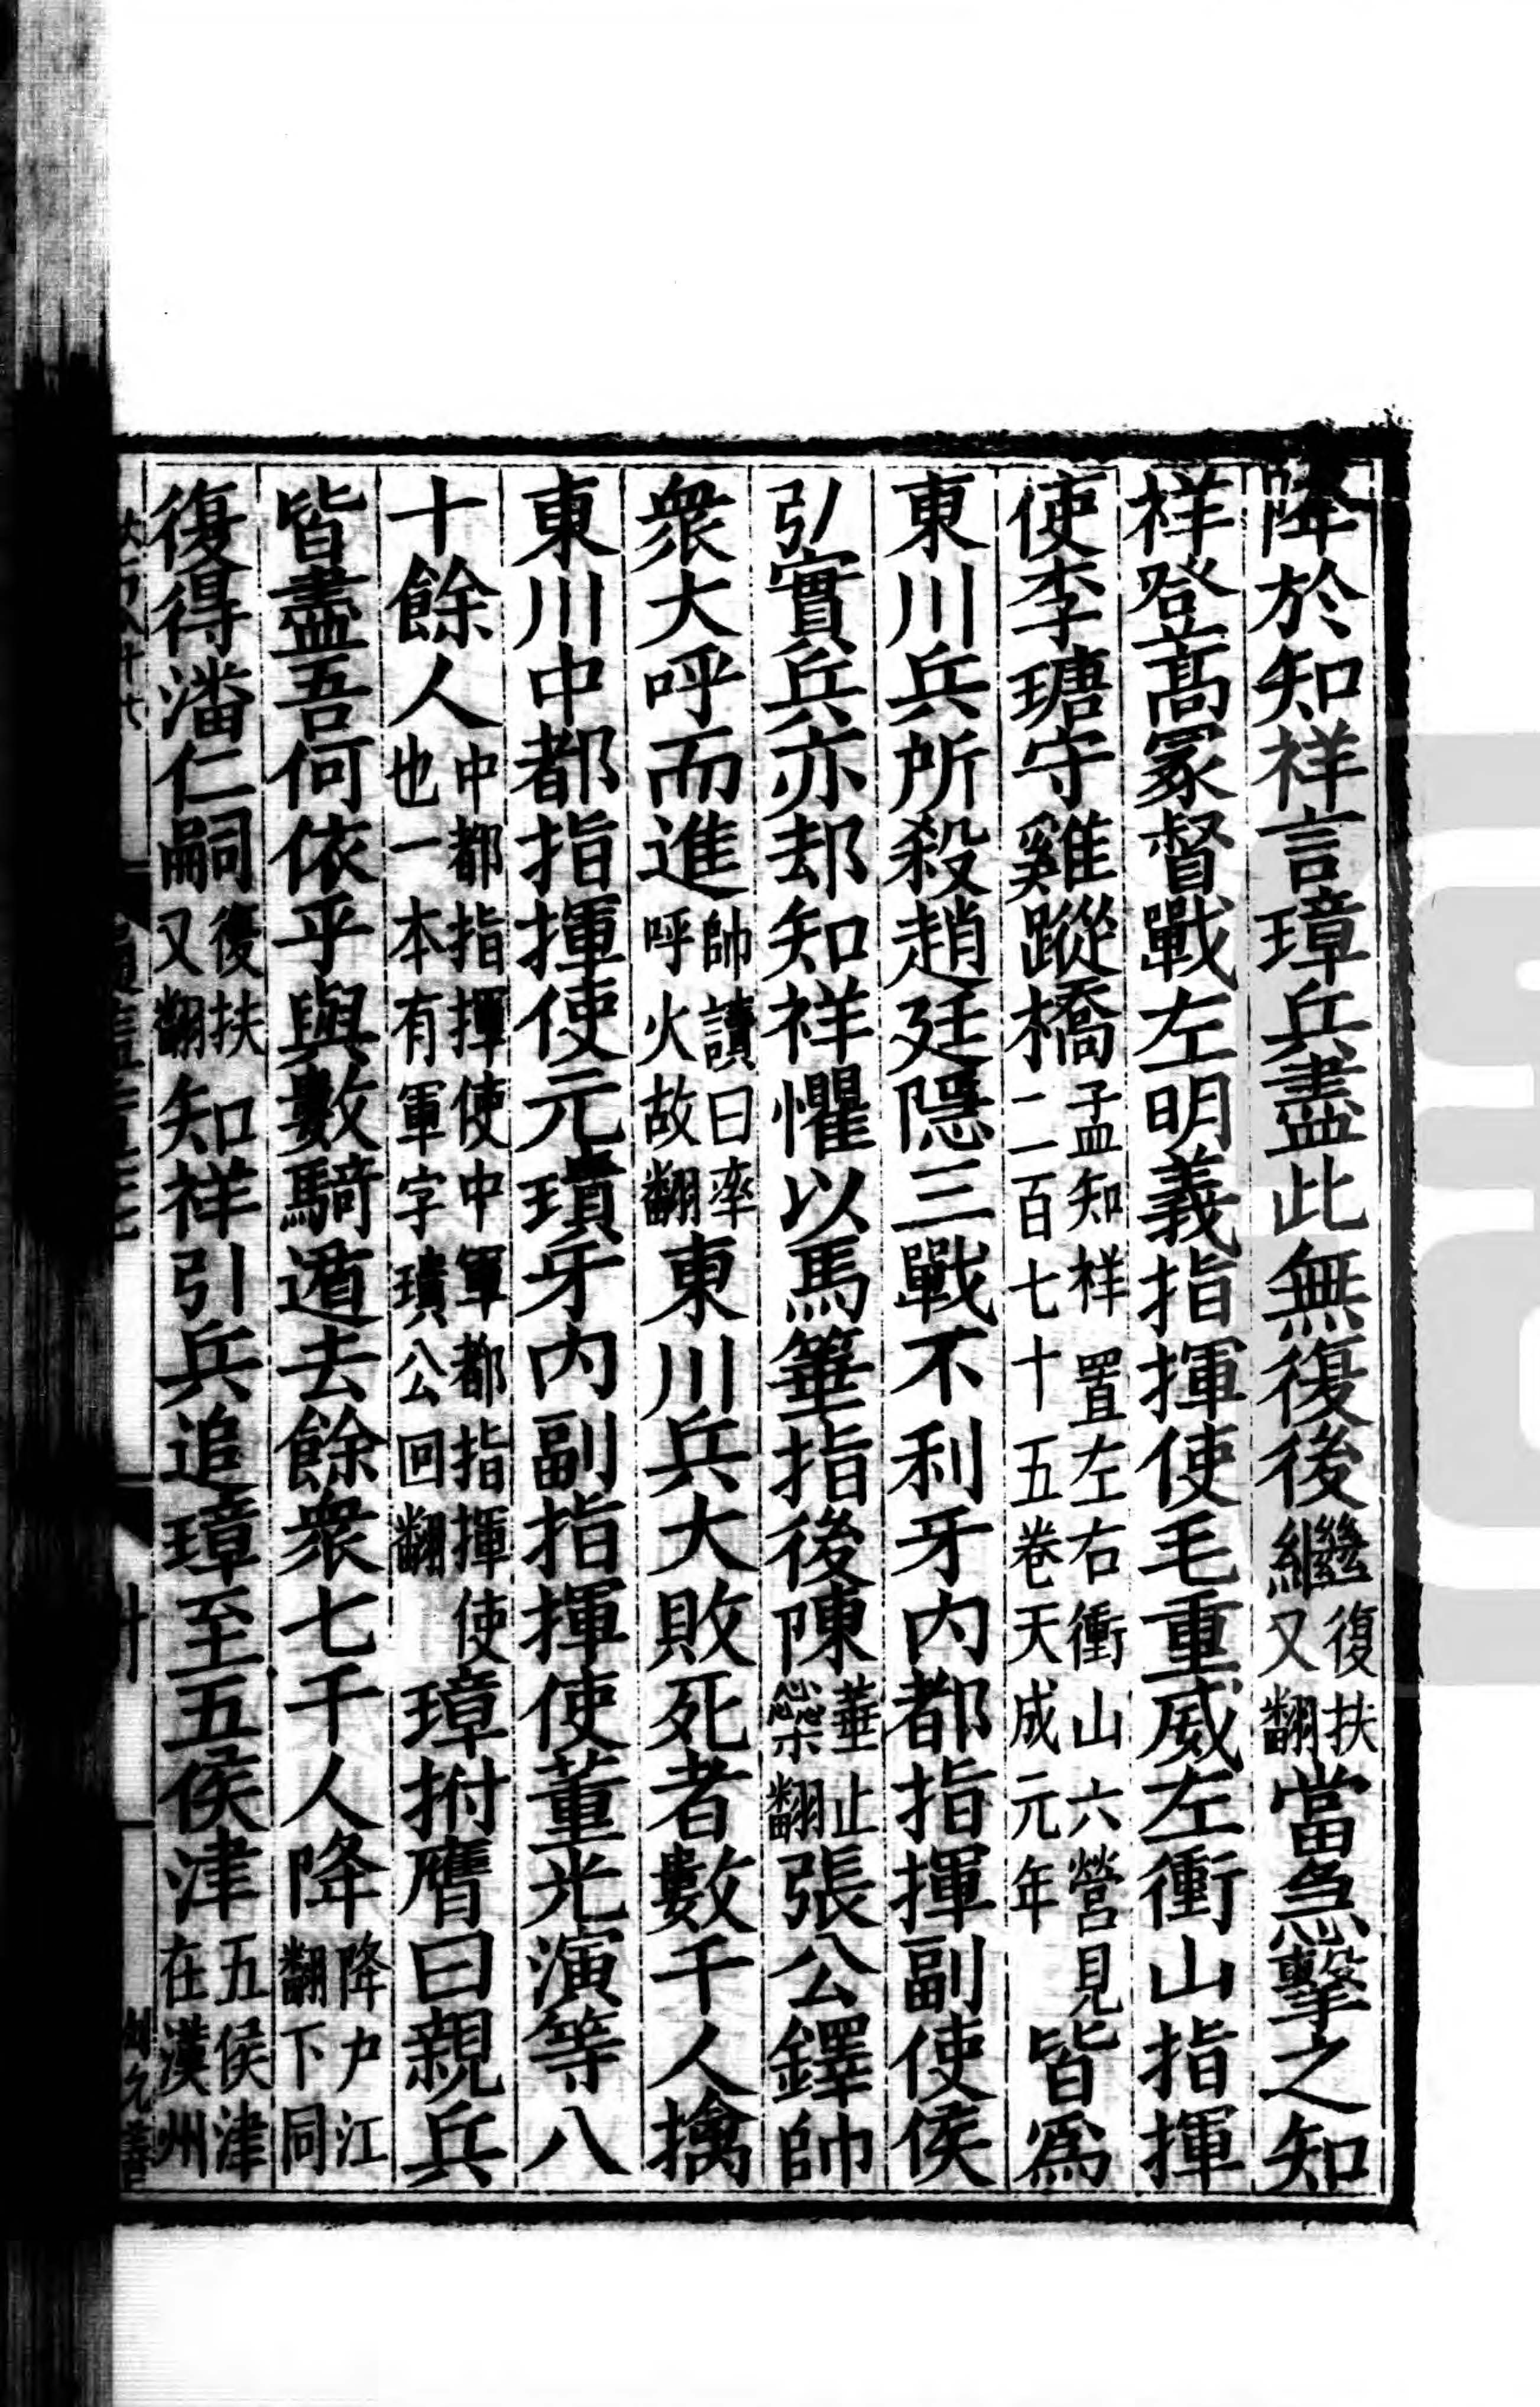 降於知祥言璋兵盡此無復後繼復扶又翻當急擊之知
祥登高冢督戰左明義指揮使毛重威左衝山指揮
使李瑭守雞蹤橋孟知祥置左右衝山六營見二百七十五卷天成元年皆爲
東川兵所殺趙廷隱三戰不利牙內都指揮副使侯
弘實兵亦却知祥懼以馬箠指後陳箠止橤翻張公鐸帥
衆大呼而進帥讀曰率呼火故翻東川兵大敗死者數千人擒
東川中都指揮使元瓌牙內副指揮使董光演等八
十餘人中都指揮使中軍都指揮使也一本有軍字瓌公回翻璋拊膺曰親兵
皆盡吾何依乎與數騎遁去餘衆七千人降降戶江翻下同
復得潘仁嗣復扶又翻知祥引兵追璋至五侯津五侯津在漢州